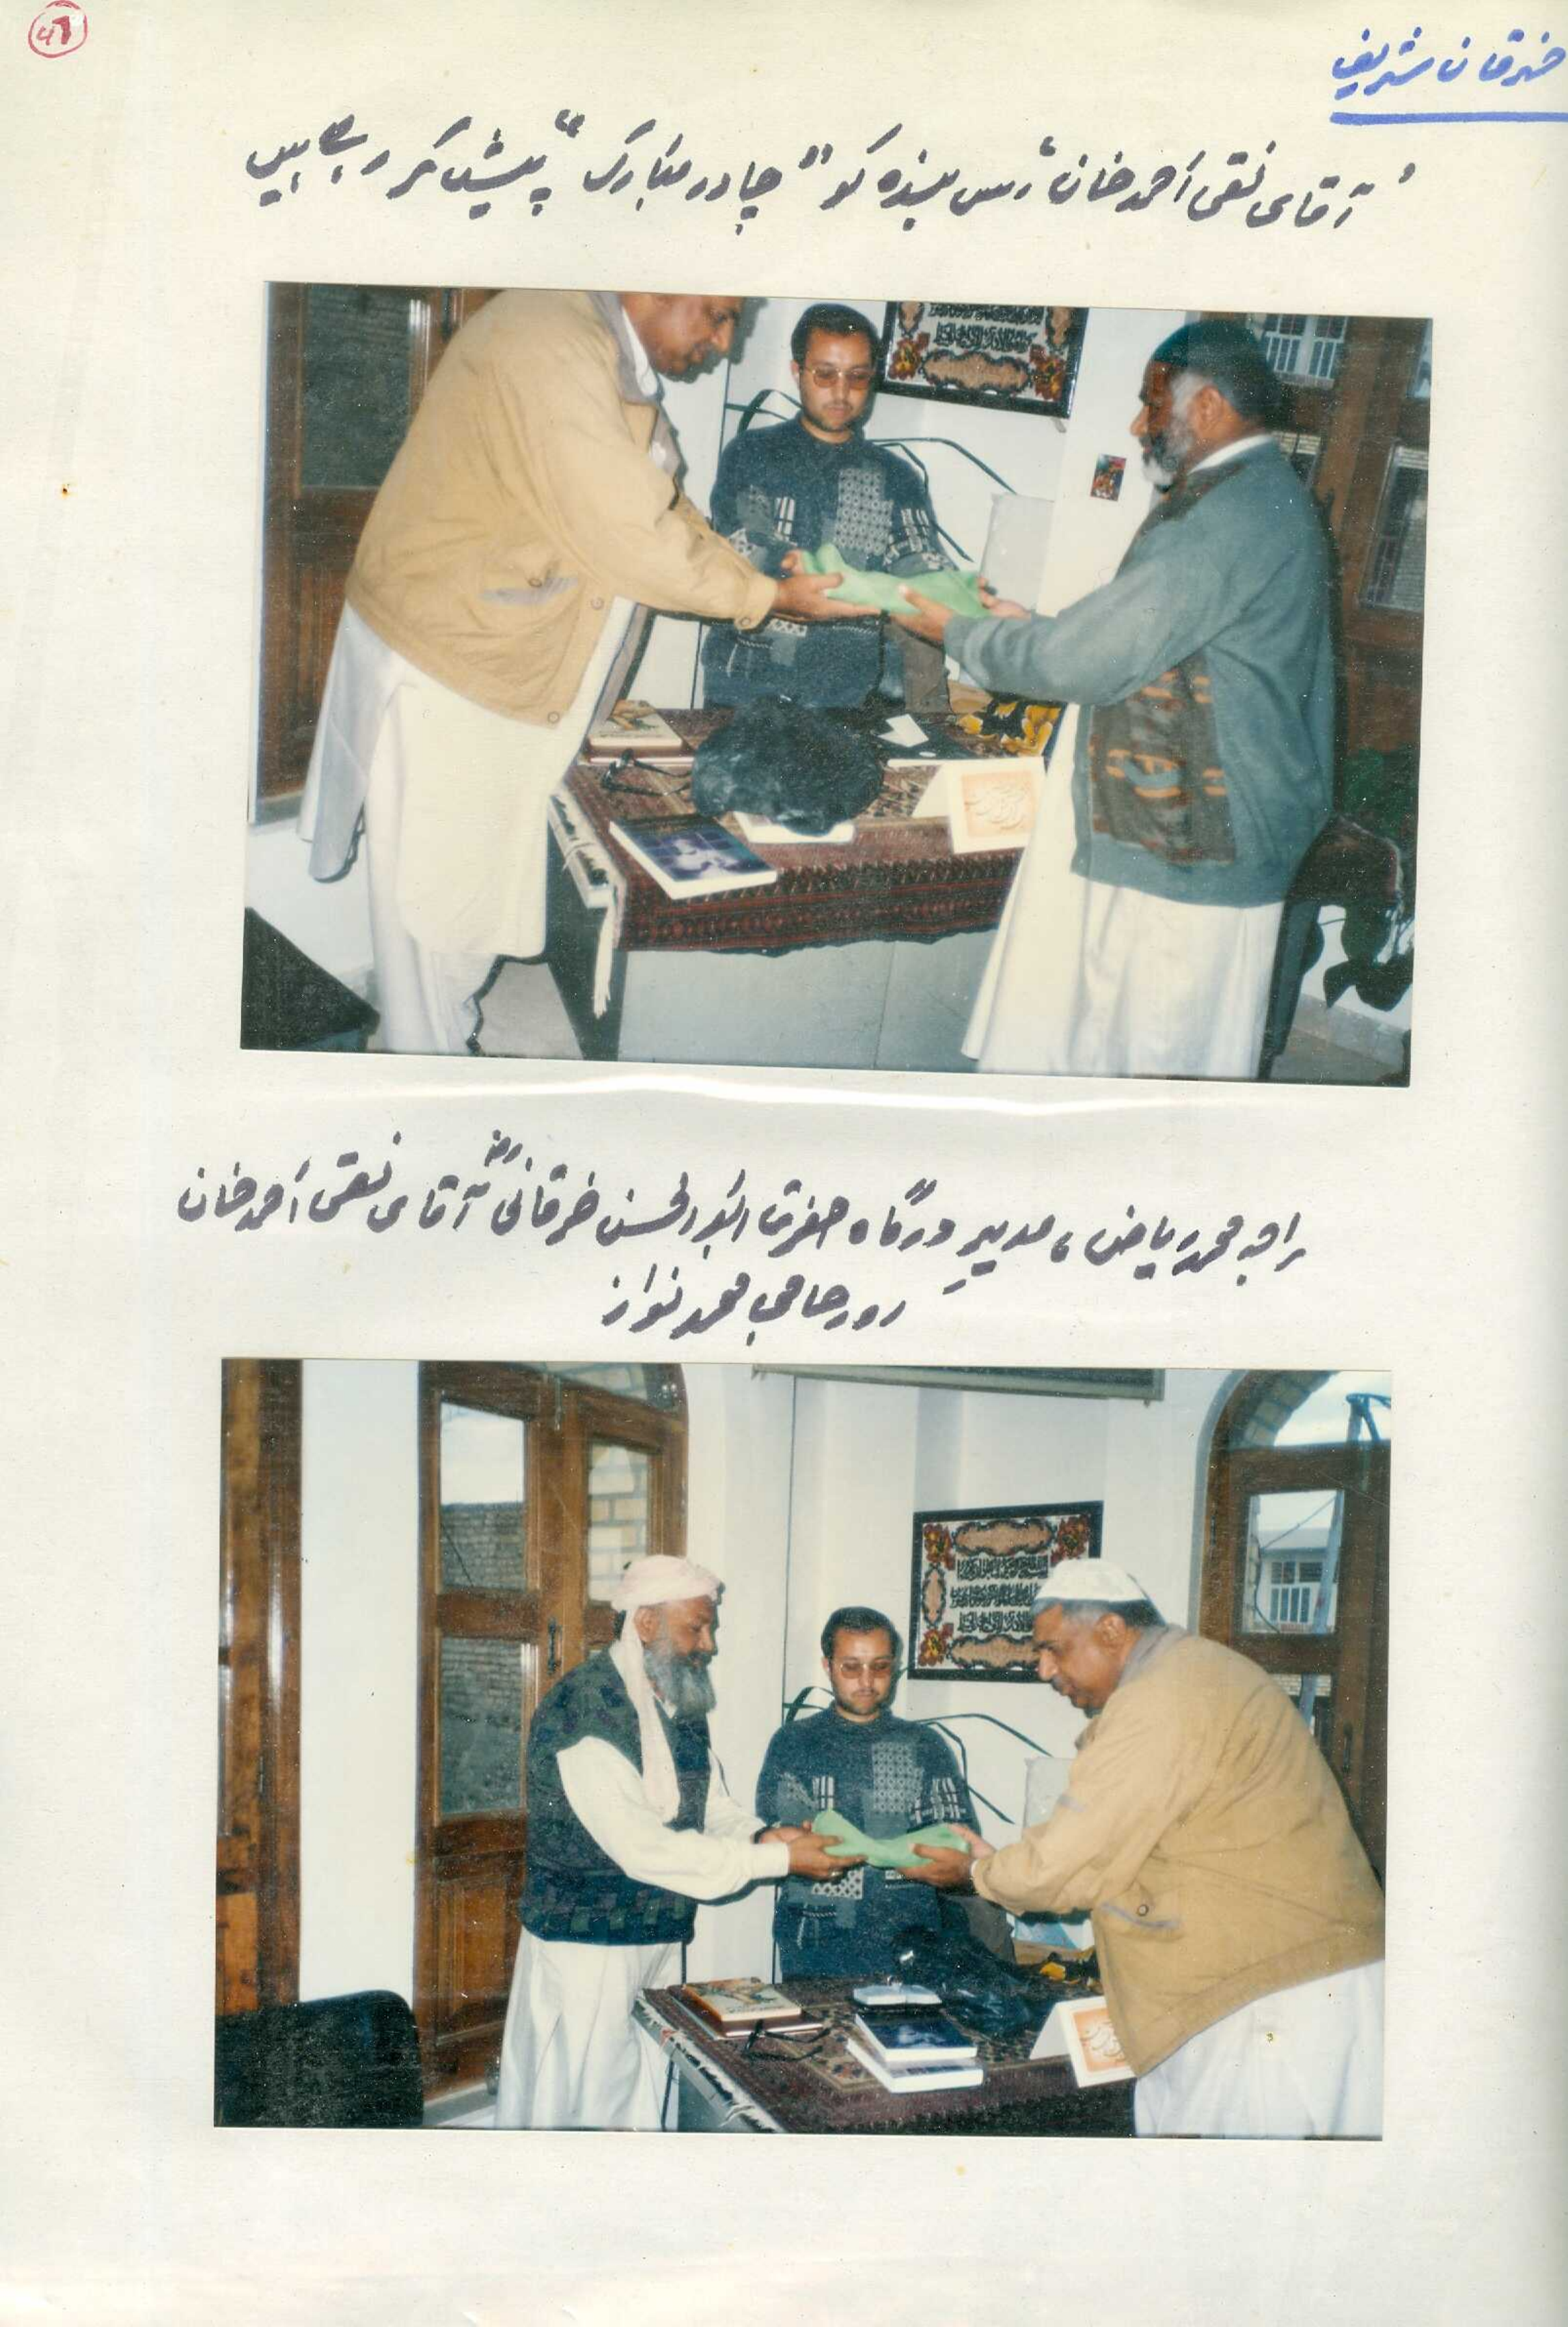 47
خرقان شریف
آقای نقی احمد خان، اس بندہ کو "چادر مبارک" پیش کر رہے ہیں
راجہ محمد ریاض، مدیرِ درگاہ حضرت ابوالحسن خرقانیؒ آقای نقی احمد خان
اور حاجی محمد نواز